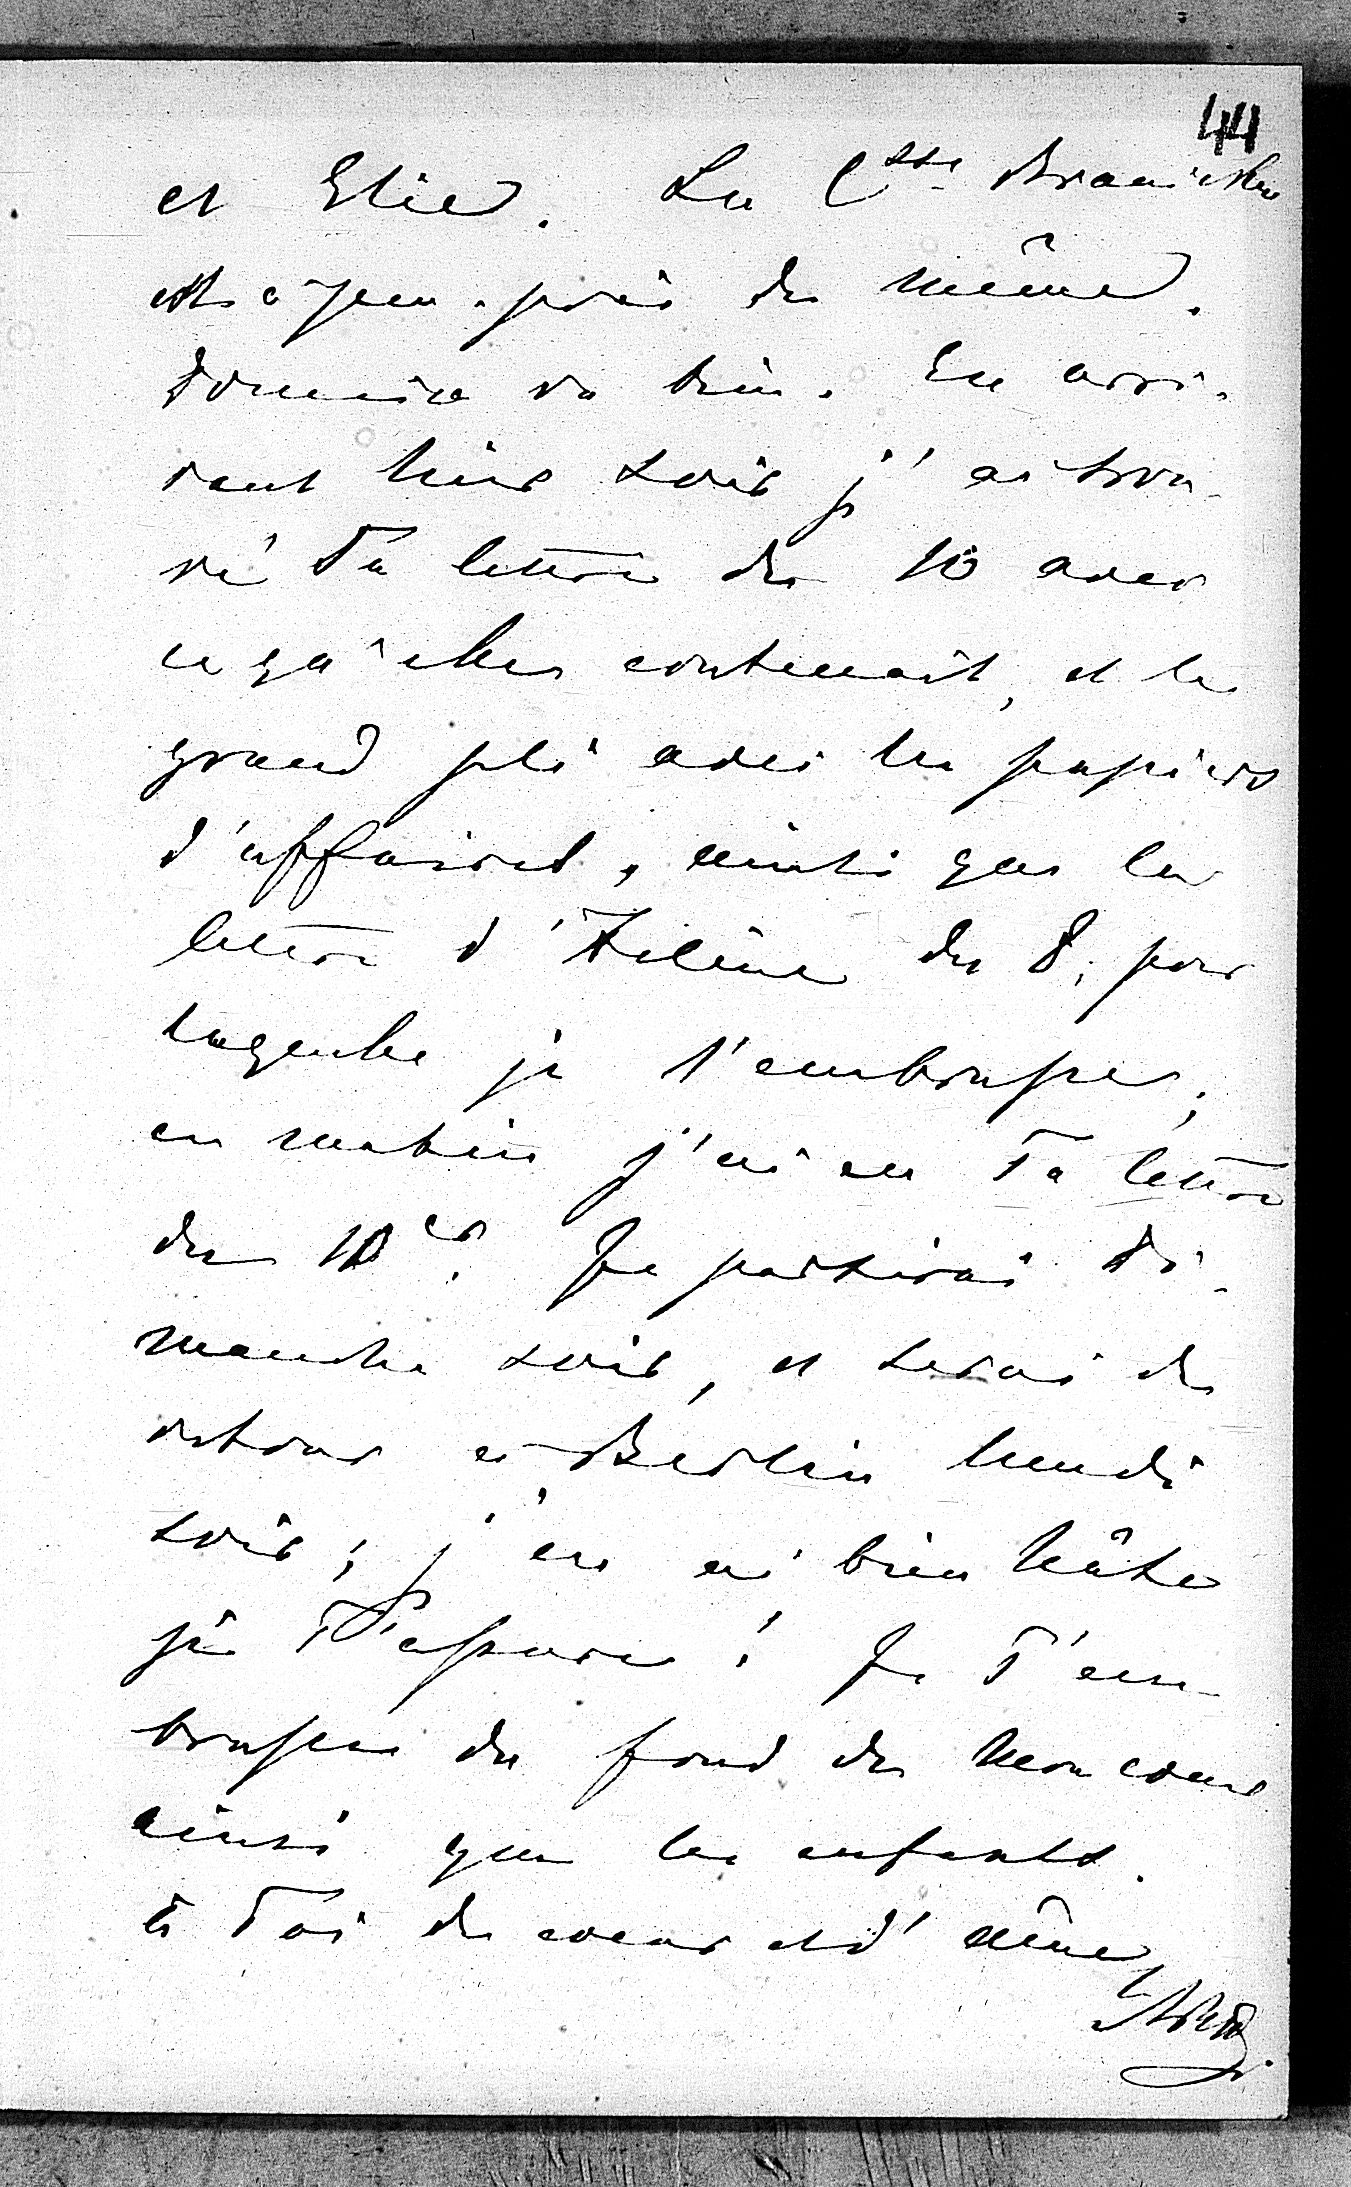 44
et Elise. La C^tsse Branicka
est à peu-près de même.
va bien. En arri-
vant hier soir j'ai trou-
vé Ta lettre du 10 avec
ce qu'elle contenait, et le
grand pli avec les papiers
d'affaires, ainsi que la
lettre d'Hélène du 8, pour
laquelle je l'embrasse;
ce matin j'ai eu Ta lettre
du 10^er. Je partirai Di-
manche soir, et serai de
retour à Berlin lundi
soir; j'en ai bien hâte
je T'assure! Je T'em-
brasse du fond de mon coeur
ainsi que les enfants.
à Toi de coeur et d'âme